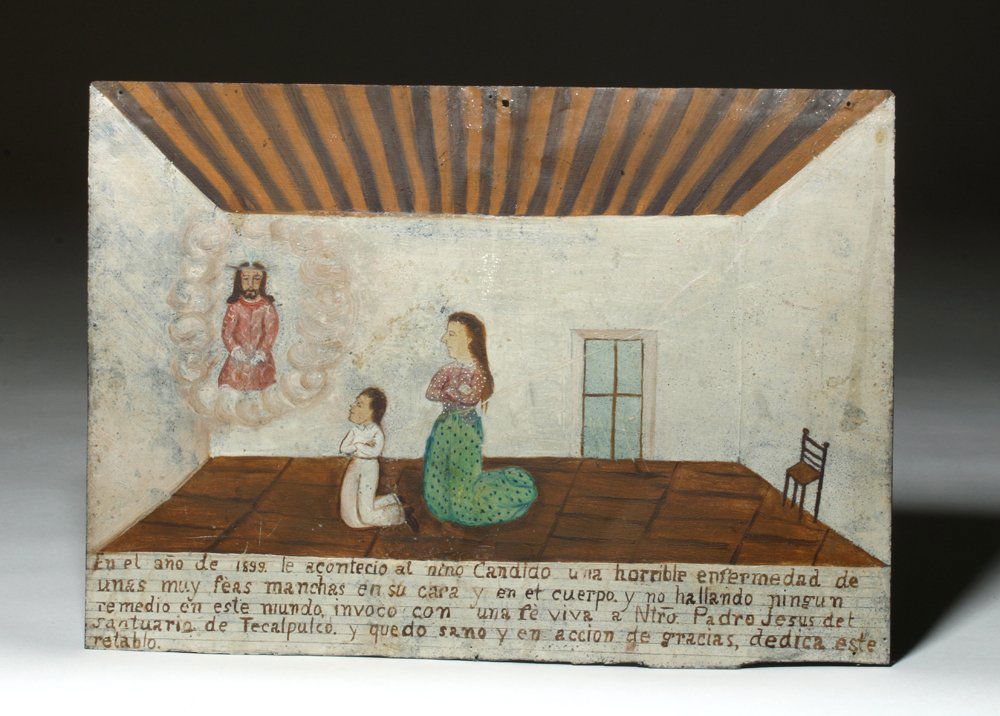 En el año de 1899. le acontecio al niño Candido una horrible enfermedad de
unas muy fèas manchas en su cara y en et cuerpo. y no hallando ningun
remedio en este mundo, invoco con una fè viva a Ntrō. Padre Jesus det
santuario de Tecalpulco. y quedo sano y en accion de gracias, dedica este
retablo.